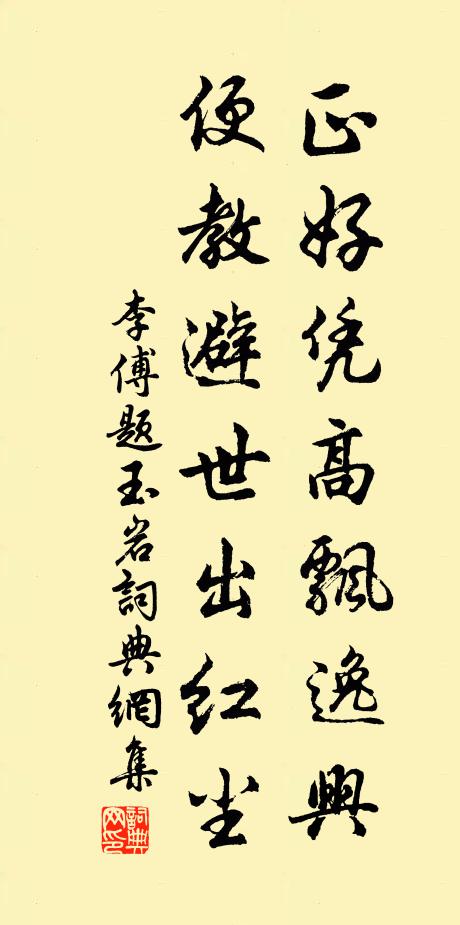 正好凭高飘逸興
便教避世出红尘
李傅题玉岩詞典網集
詞典网印